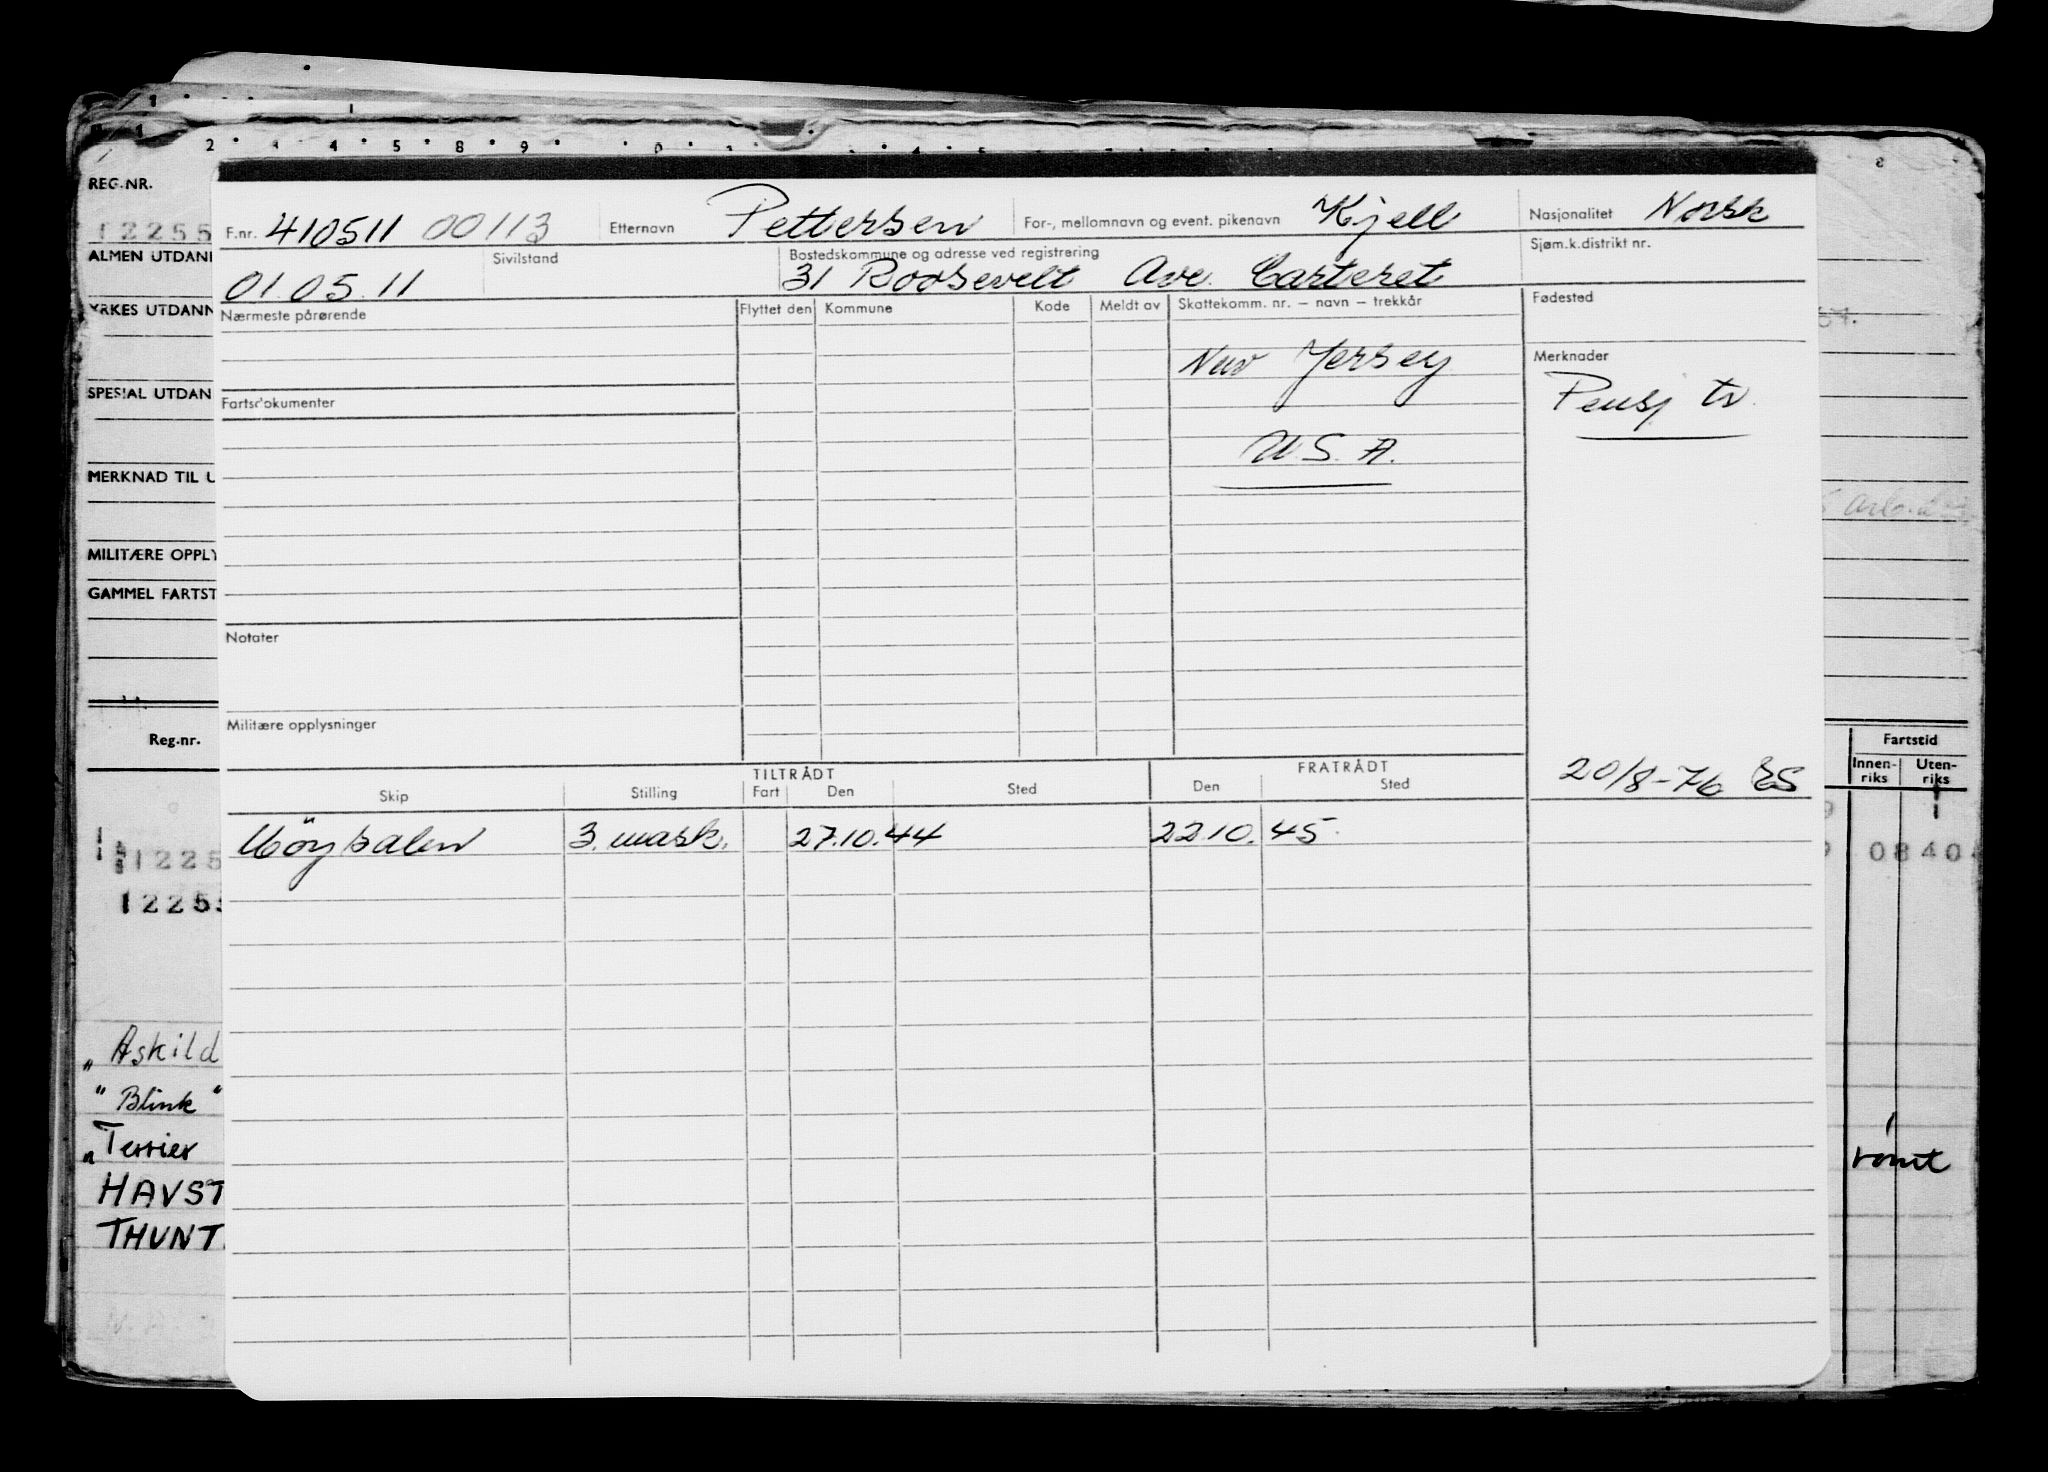 2 3 4 5 8 9
REG.NR.
F.nr. 410511 00113 Etternavn Pettersen For-, mellomnavn og event. pikenavn Kjell Nasjonalitet Norsk
12255
ALMEN UTDANN
01.05.11 Sivilstand Bostedskommune og adresse ved registrering Sjøm.k.distrikt nr.
31 Roosevelt Ave. Carteret
YRKES UTDANN
Nærmeste pårørende Flyttet den Kommune Kode Meldt av Skattekomm. nr. – navn – trekkår Fødested
New Jersey Merknader
SPESIAL UTDAN
Fartsdokumenter Pensj tv.
U.S.A.
MERKNAD TIL U
MILITÆRE OPPLY
GAMMEL FARTST
Notater
Militære opplysninger
Reg.nr. Fartstid
Innen-riks Uten-riks
TILTRÅDT FRATRÅDT 20/8-76 ES
Skip Stilling Fart Den Sted Den Sted
Höysalen 3. mask. 27.10.44 22.10.45
1225 0840
12255
"Askild
"Blink"
"Terrier
rømt
HAVST
THUNT